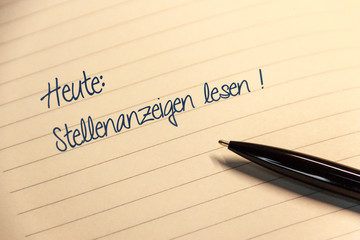 Heute:
Stellenanzeigen lesen !